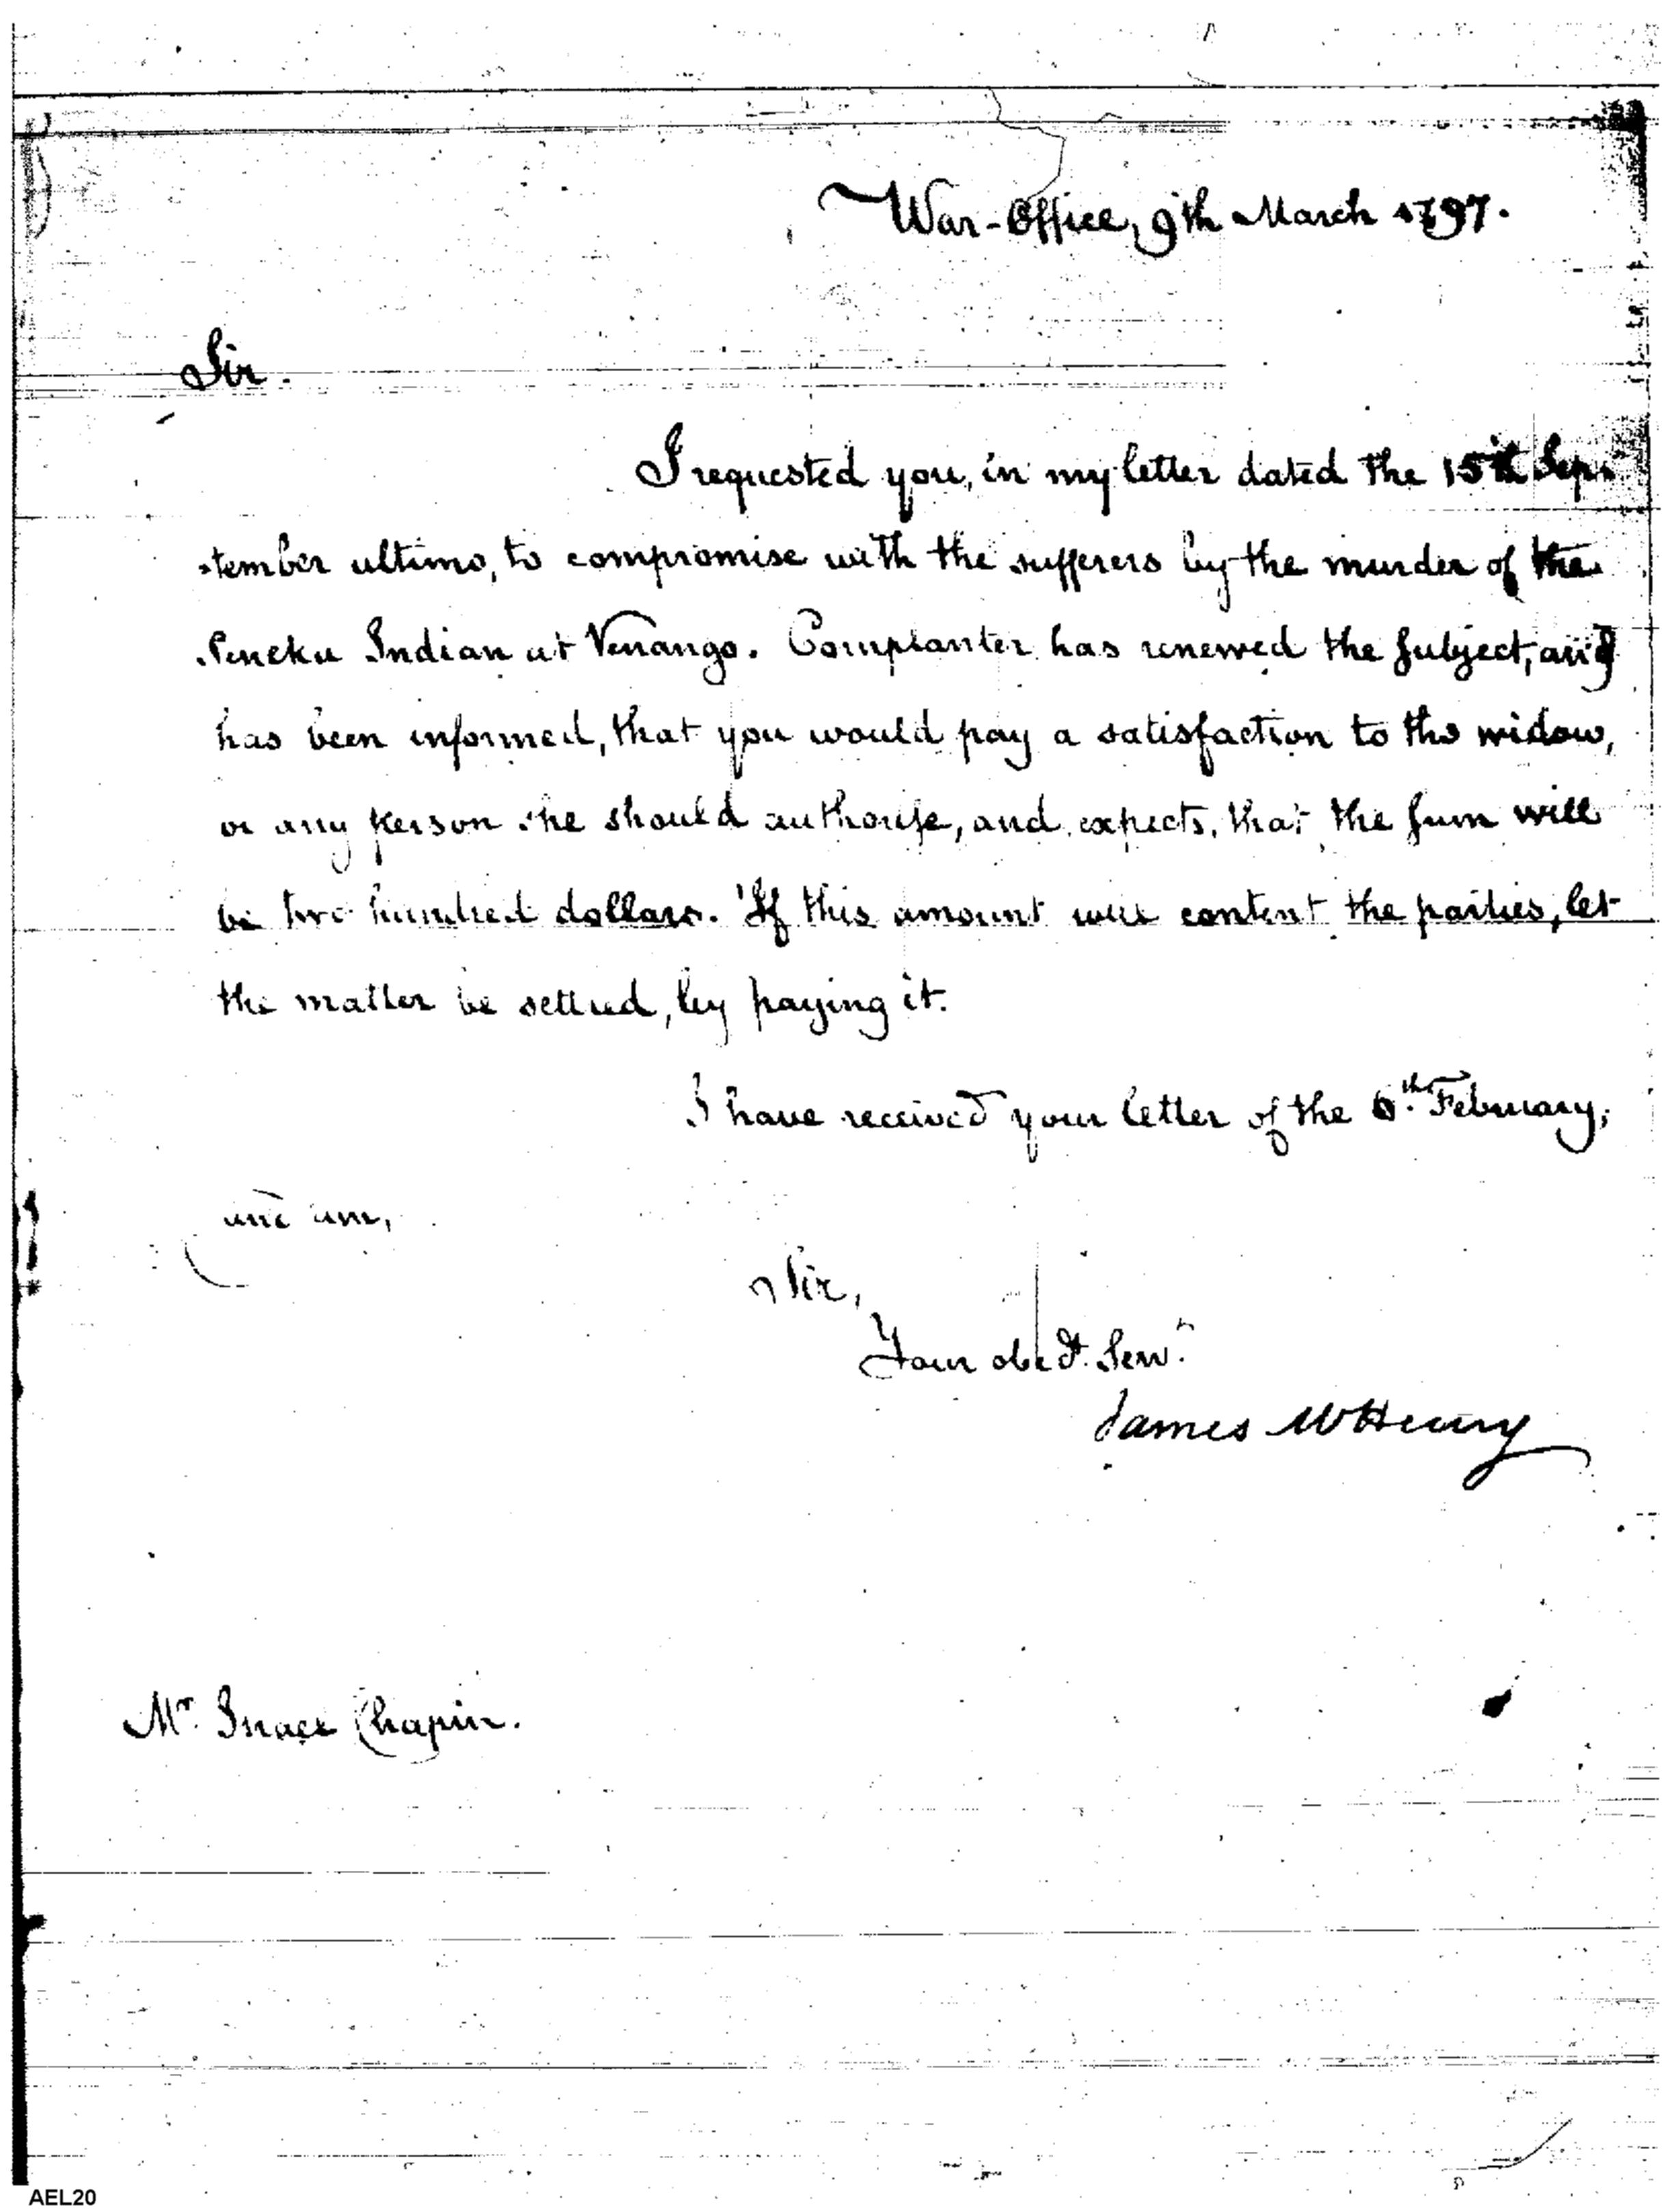 War-Office, 9th March 1797.
Sir.
I requested you, in my letter dated the 15th Sep-
-tember ultimo, to compromise with the sufferers by the murder of the
Seneka Indian at Venango. Cornplanter has renewed the subject, and
has been informed, that you would pay a satisfaction to the widow,
or any person she should authorise, and expects, that the sum will
be two hundred dollars. If this amount will content the parties, let
the matter be settled, by paying it.
I have received your letter of the 6th February,
and am,
Sir,
Your obedt. Servt.
James McHenry
Mr. Israel Chapin.
AEL20